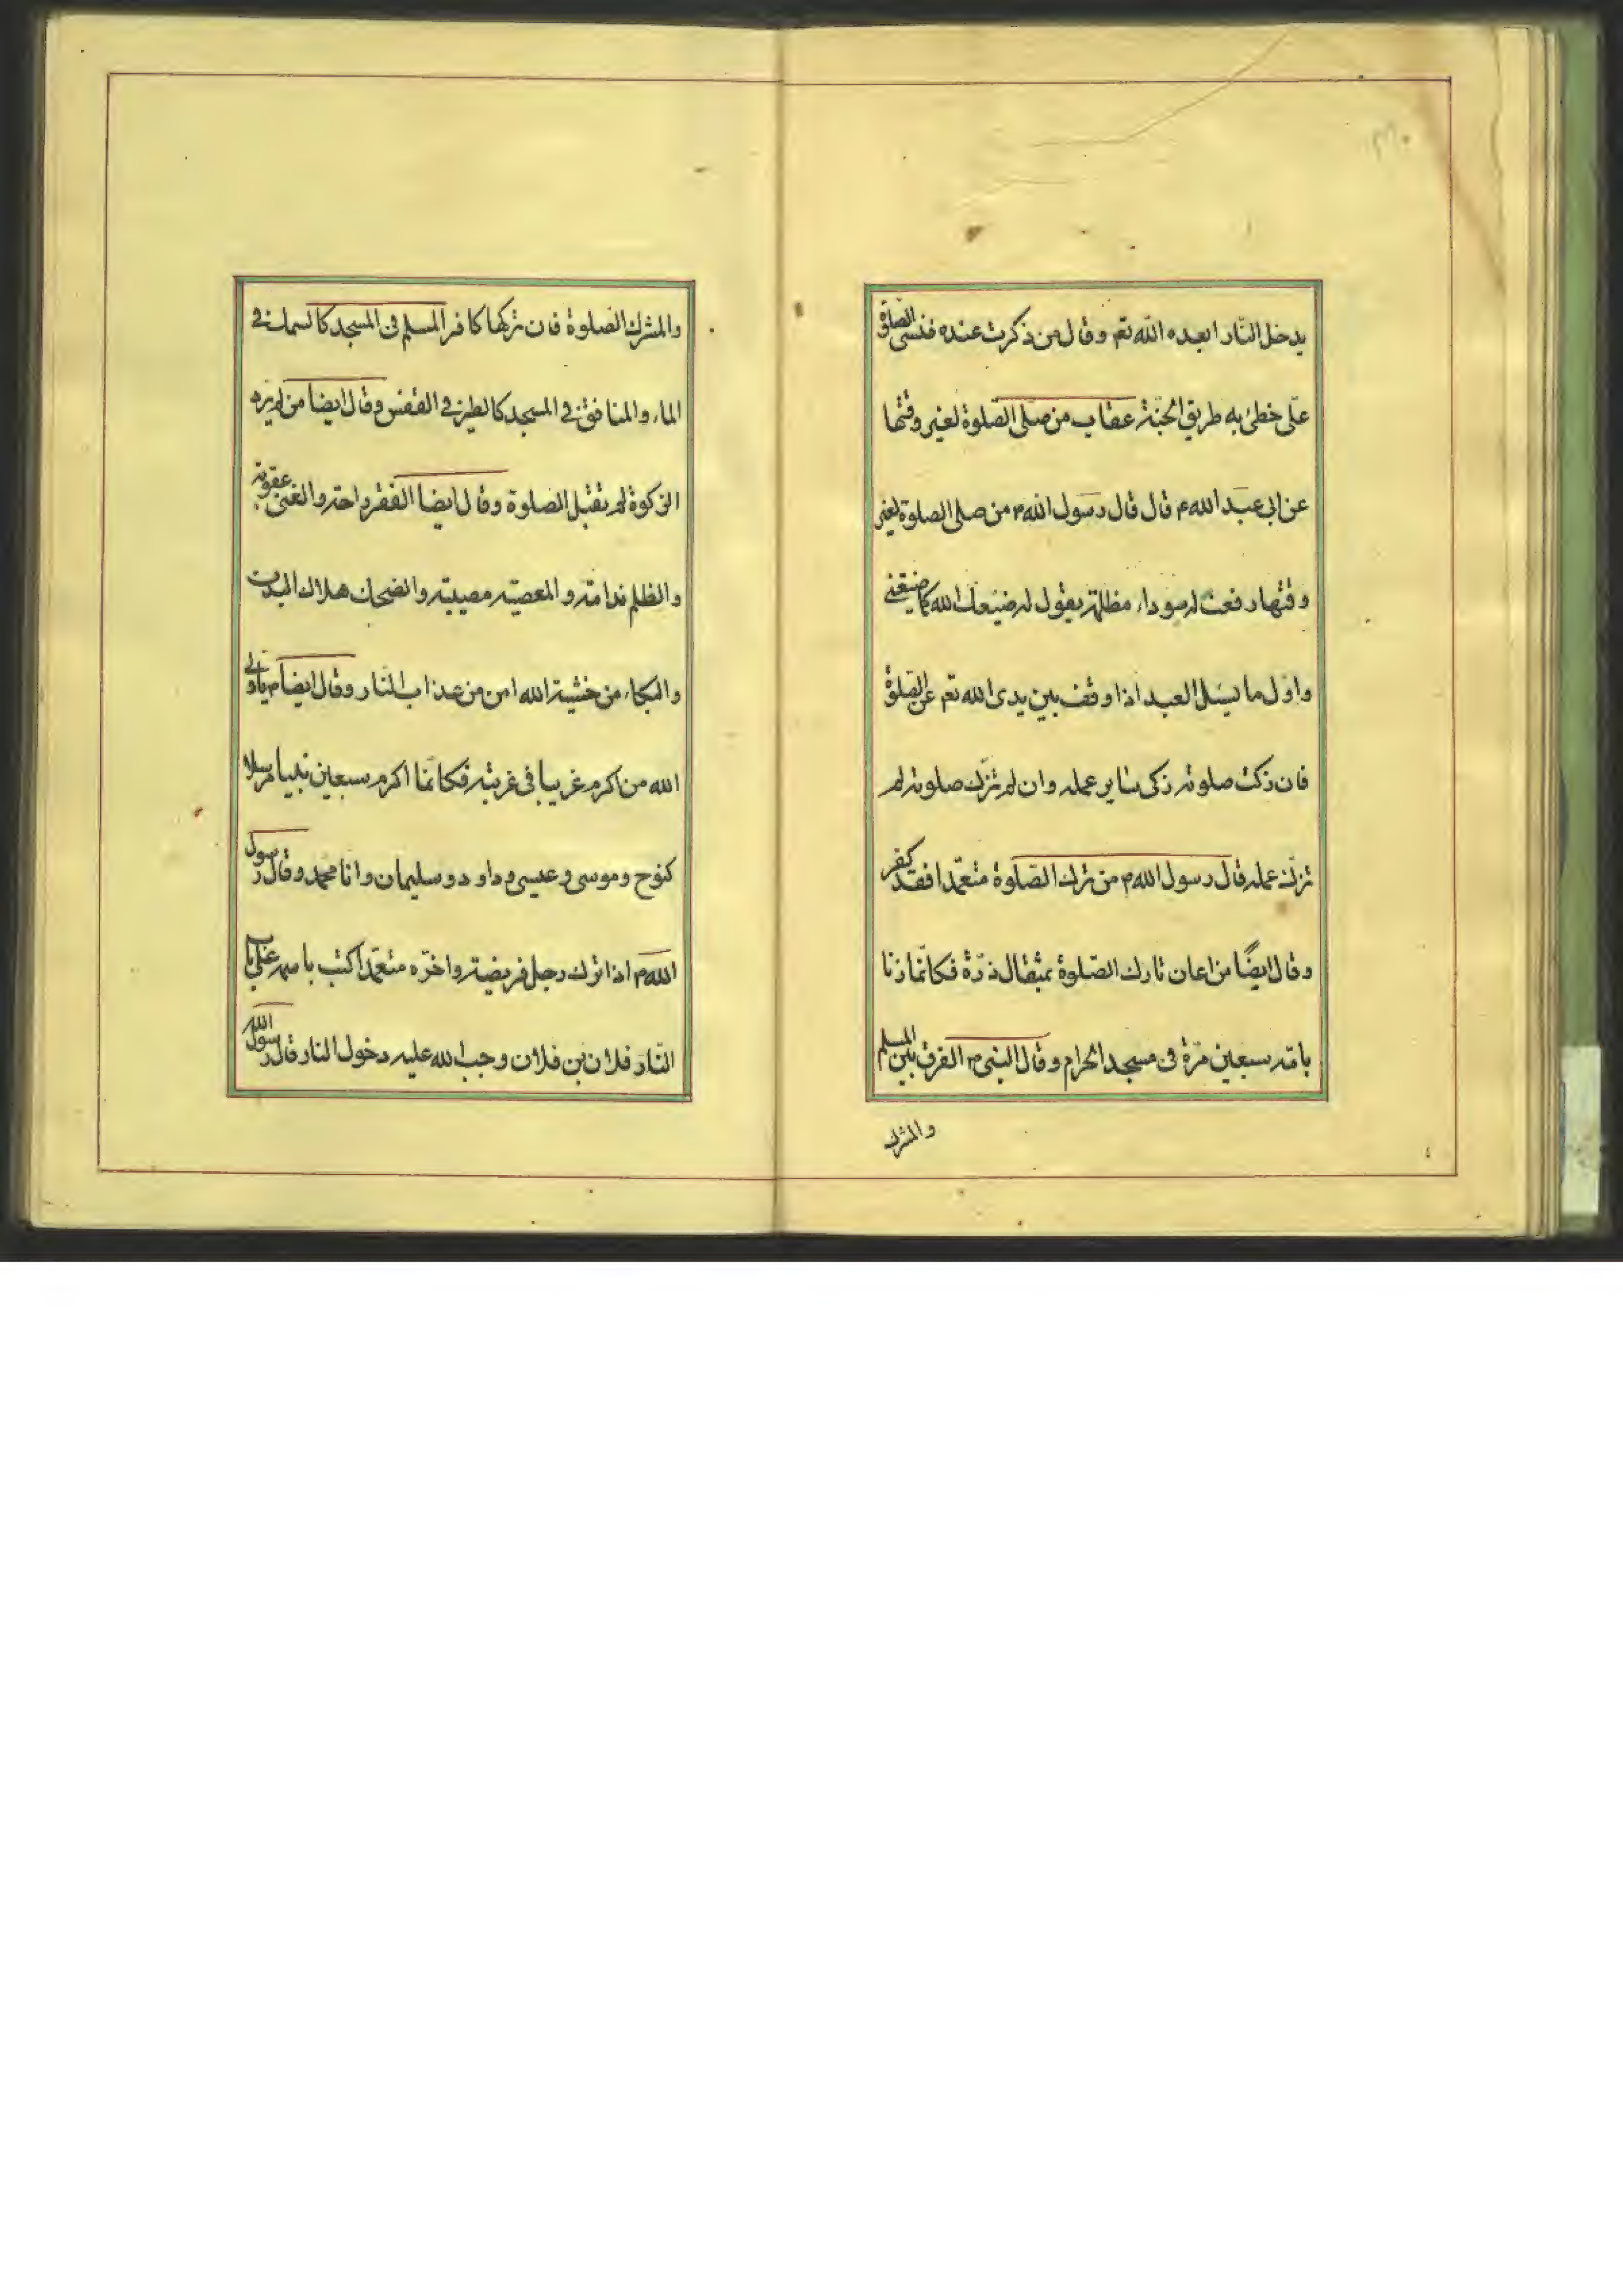 يدخل النّار ابعده اللّه تعم وقال من ذكرت عنده فنسى الصلوة
علىّ خطئ به طريق الجنّة عقاب من صلّى الصّلوة لغير وقتها
عن ابى عبد الله م قال قال رسول الله م من صلى الصلوة لغير
وقتها رفعت له سوداء مظلمة يقول له ضيّعك الله كما ضيّعتنى
واوّل ما يسئل العبد اذا وقف بين يدى الله تعم عن الصّلوة
فان زكت صلوته زكى ساير عمله وان لم تزك صلوته لم
تزك عمله قال رسول الله م من ترك الصّلوة متعمّدا فقد كفر
وقال ايضًا من اعان تارك الصّلوة بمثقال ذرّة فكانّما زنا
بامّه سبعين مرّة فى مسجد الحرام وقال النبى م الفرق بين المسلم
والمشرك
والمشرك الصلوة فان تركها كافر المسلم فى المسجد كالسمك فى
الماء والمنافق فى المسجد كالطير فى القفس وقال ايضا من لم يره
الزكوة لم يقبل الصلوة وقال ايضا الفقر راحة والغنى عقوبة
والظلم ندامة والمعصية مصيبة والضحك هلاك البدن
والبكاء من خشية الله امن من عذاب النار وقال ايضا م يا ولى
الله من اكرم غريبا فى غربته فكانّما اكرم سبعين نبيا مرسلا
كنوح وموسى وعيسى وداود وسليمان وانا محمد وقال رسول
الله م اذا ترك رجل فريضة واخرّه متعمّدا كتب باسمه على باب
النّار فلان بن فلان وجب الله عليه دخول النار قال رسول الله